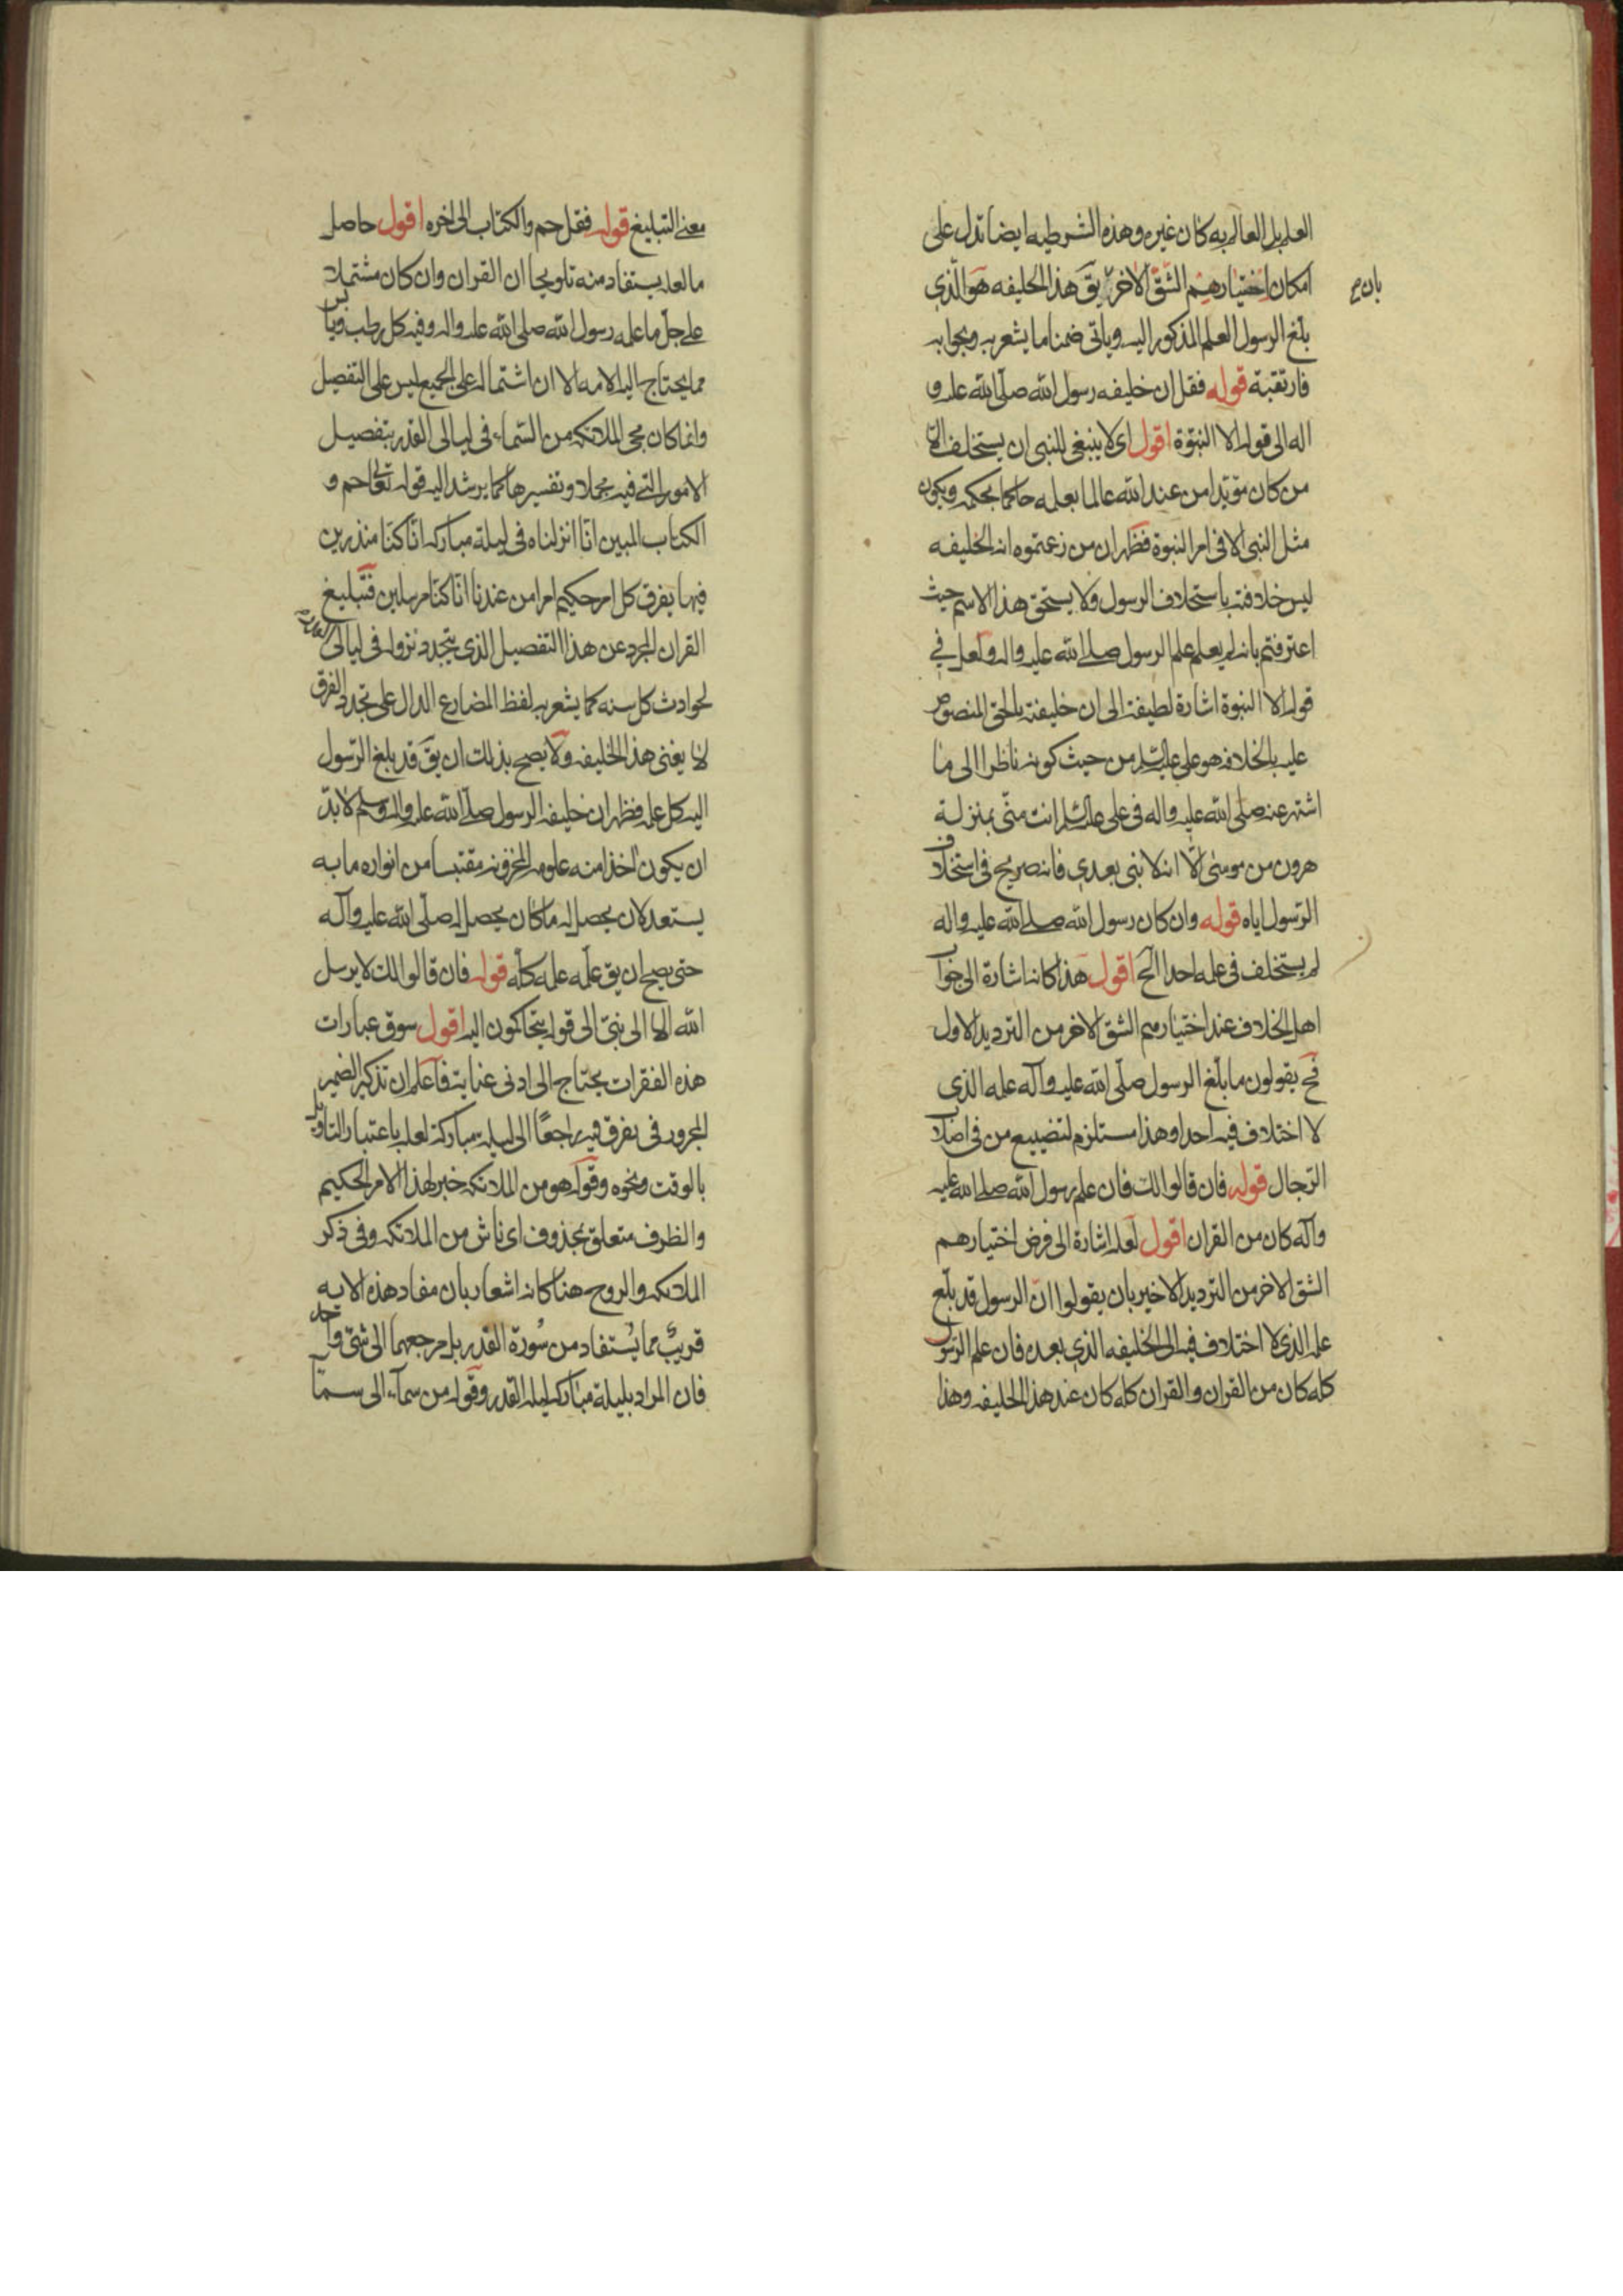 العلم بل العالم به كان غيره وهذه الشرطيه ايضا تدل على
امكان اختيارهم الشق الاخر يق هذا الخليفه هو الذي
بان ح
بلغ الرسول العلم المذكور اليه وياتى ضمنا ما يشعر به وبجوابه
فارتقبة قوله فقل ان خليفه رسول الله صلى الله عليه و
اله الى قوله الا النبوة اقول اى لا ينبغى للنبى ان يستخلف الا
من كان مؤيدا من عند الله عالما بعلمه حاكما بحكمه ويكون
مثل النبى الا فى امر النبوة فظهر ان من زعمتموه انه الخليفه
ليس خلافته باستخلاف الرسول ولا يستحق هذا الاسم حيث
اعترفتم بانه لم يعلم علم الرسول صلى الله عليه واله ولعل في
قوله الا النبوة اشارة لطيفة الى ان خليفته بالحق المنصوص
عليه بالخلافه هو على عليه السلم من حيث كونه ناظرا الى ما
اشتهر عنه صلى الله عليه واله فى على عليه السلم انت منى بمنزلة
هرون من موسى الا انه لا نبى بعدي فانه صريح فى استخلاف
الرسول اياه قوله وان كان رسول الله صلى الله عليه واله
لم يستخلف فى علمه احدا الخ اقول هذا كانه اشارة الى جواب
اهل الخلاف عند اختيارهم الشق الاخر من الترديد الاول
فح يقولون ما بلغ الرسول صلى الله عليه وآله علمه الذى
لا اختلاف فيه احدا وهذا مستلزم لتضييع من فى اصلاب
الرجال قوله فان قالوا لك فان علم رسول الله صلى الله عليه
وآله كان من القران اقول لعله اشارة الى فرض اختيارهم
الشق الاخر من الترديد الاخير بان يقولوا ان الرسول قد بلغ
علمه الذى لا اختلاف فيه الى الخليفه الذي بعده فان علم الرسول
كله كان من القران والقران كله كان عند هذا الخليفه وهذا
معنى التبليغ قوله فقل حم والكتاب الى اخره اقول حاصل
ما لعله يستفاد منه تلويحا ان القران وان كان مشتملا
على جل ما علمه رسول الله صلى الله عليه واله وفيه كل رطب ويابس
مما يحتاج اليه الامه الا ان اشتماله على الجميع ليس على التفصيل
وانما كان مجئ الملائكه من السماء فى ليالى القدر بتفصيل
الامور التى فيه مجملا وتفسيرها كما يرشد اليه قوله تعالى حم و
الكتاب المبين انا انزلناه فى ليلة مباركه انا كنا منذرين
فيها يفرق كل امر حكيم امرا من عندنا انا كنا مرسلين فتبليغ
القران المجرد عن هذا التفصيل الذى يتجدد نزوله فى ليالى
لحوادث كل سنه كما يشعر به لفظ المضارع الدال على تجدد الفرق
لا يغنى هذا الخليفه ولا يصح بذلك ان يق قد بلغ الرسول
اليه كل علمه فظهر ان خليفه الرسول صلى الله عليه واله وسلم لا بد
ان يكون اخذا منه علومه المخزونه مقتبسا من انواره ما به
يستعد لان يحصل له ما كان يحصل له صلى الله عليه وآله
حتى يصح ان يق علمه علمه كله قوله فان قالوا لك لا يرسل
الله الا الى نبى الى قوله يتحاكمون اليه اقول سوق عبارات
هذه الفقرات يحتاج الى ادنى عناية فاعلم ان تذكير الضمير
المجرور فى يفرق فيه راجعًا الى ليلة مباركة لعله باعتبار التاويل
بالوقت ونحوه وقوله هو من الملائكه خبر لهذا الامر الحكيم
والظرف متعلق بمحذوف اى ناش من الملائكه وفى ذكر
الملائكه والروح هنا كانه اشعار بان مفاد هذه الايه
قريب مما يُستفاد من سُورة القدر بل مرجعهما الى شئ واحد
فان المراد بليلة مباركه ليله القدر وقوله من سماء الى سماء